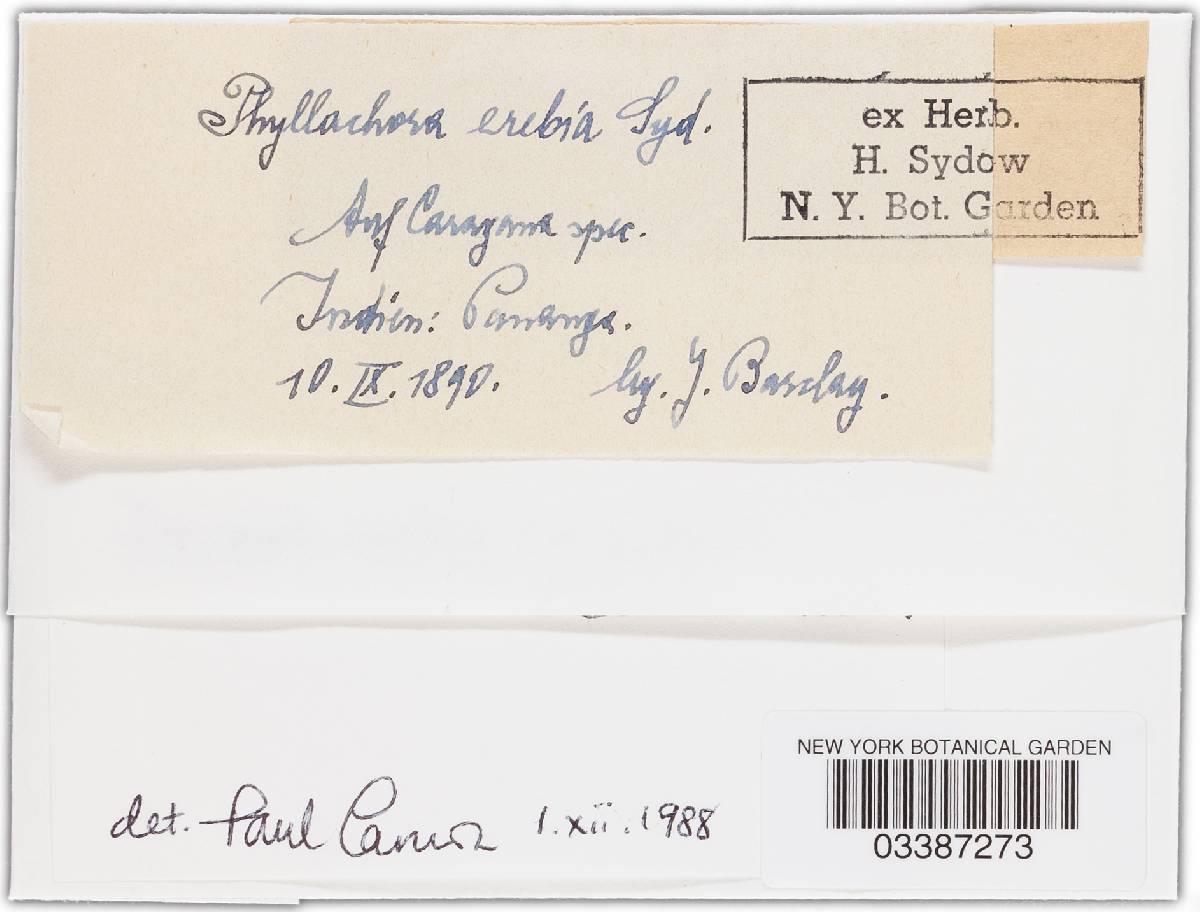 Phyllachora erebia Syd.
Auf Caragana spec.
Indien:
10. IX. 1890. leg. J. Barclay.
ex Herb.
H. Sydow
N. Y. Bot. Garden
det. Paul Cannon 1.xii.1988
NEW YORK BOTANICAL GARDEN
03387273